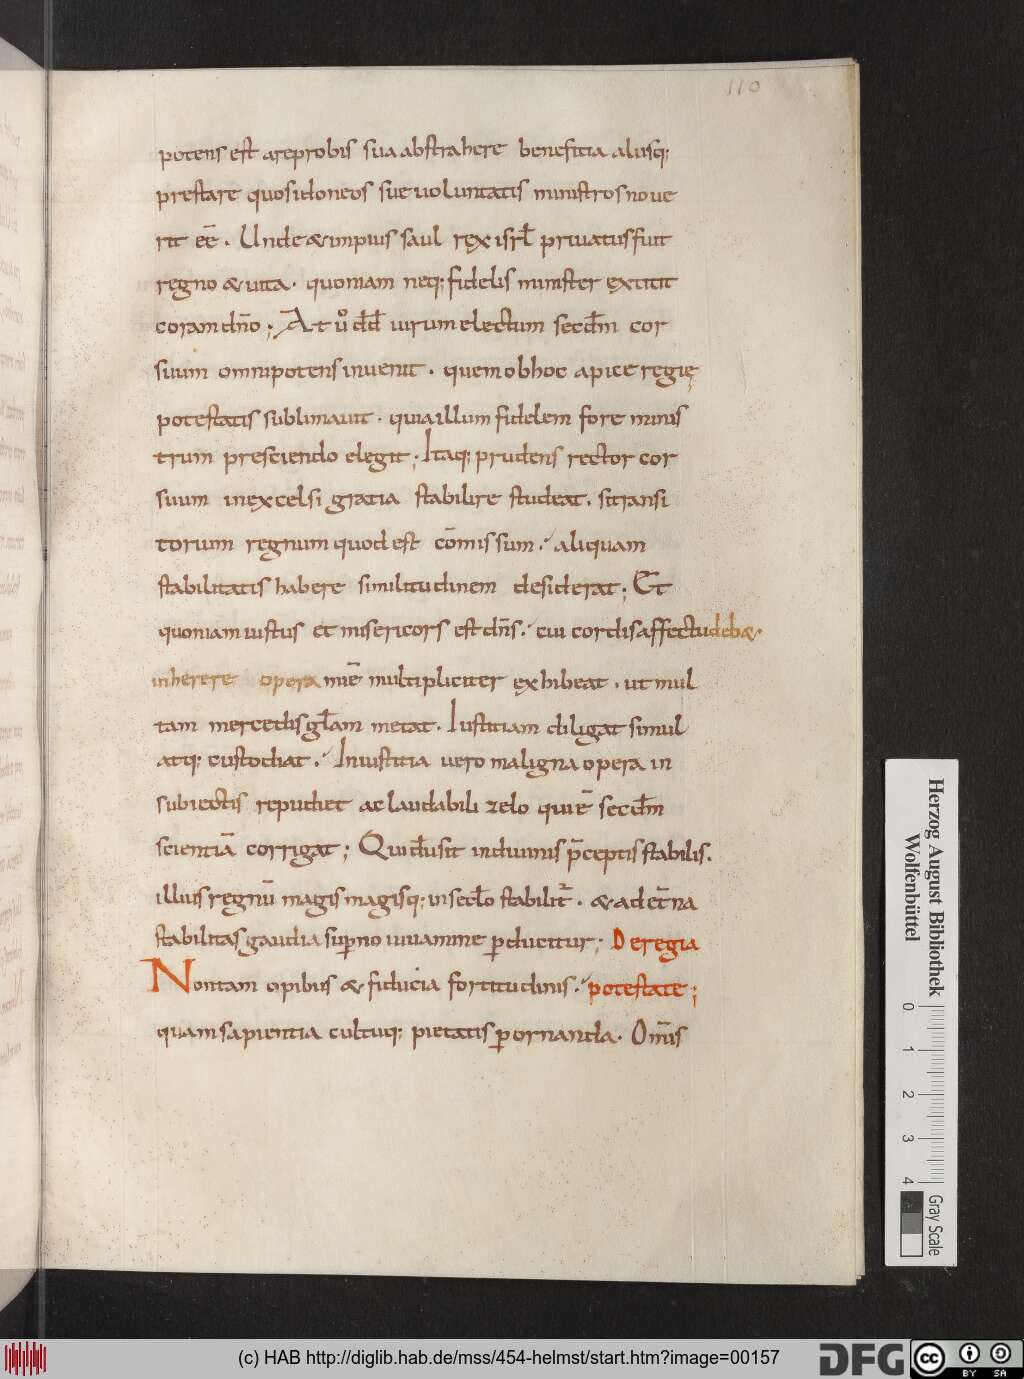 110
potens est areprobis sua abstrahere benefitia aliisq;
prestare quos idoneos sue uoluntatis ministros noue
rit eē. Unde & impius saul rex isrł priuatus fuit
regno & uita. quoniam neq; fidelis minister extitit
coram dn̄o; At ůo dd̄ uirum electum secdm̄ cor
suum omnipotens inuenit. quem ob hoc apice regię
potestatis sublimauit. quia illum fidelem fore minis
trum presciendo elegit; Itaq; prudens rector cor
suum in excelsi gratia stabilire studeat. si transi
torium regnum quod est cōmissum. aliquam
stabilitatis habere similitudinem desiderat; Et
quoniam iustus et misericors est dn̄s. cui cordis affectu deb&.
inherere opera mīe multipliciter exhibeat. ut mul
tam mercedis głam metat. Iustitiam diligat simul
atq; custodiat. Iniustitia uero maligna opera in
subiectis repudiet ac laudabili zelo qui ē secdm̄
scientiā corrigat; Qui dūsit in diuinis p̄ceptis stabilis.
illius regnū magis magisq; in secło stabilit̄. & ad et̄na
stabilitas gaudia sup̱no iuuamine p̱ducitur; De regia
Non tam opibus & fiducia fortitudinis. potestate;
quam sapientia cultuq; pietatis p̱ornanda. Om̄is
Herzog August Bibliothek
Wolfenbüttel
0 1 2 3 4
Gray Scale
(c) HAB http://diglib.hab.de/mss/454-helmst/start.htm?image=00157
DFG
cc BY SA